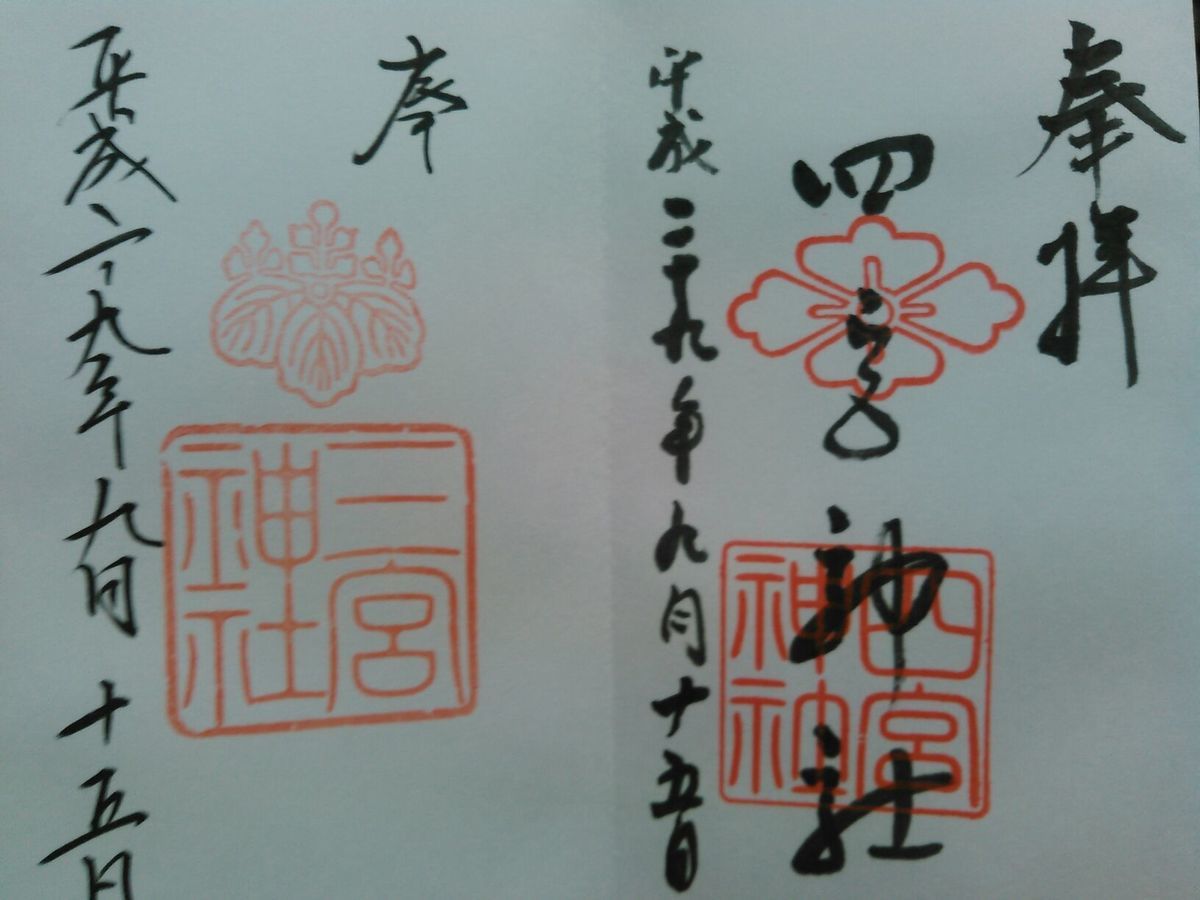 奉拝
四宮神社
四宮
神社
平成二十九年九月十五日
奉
三宮
神社
平成二九年九月十五日